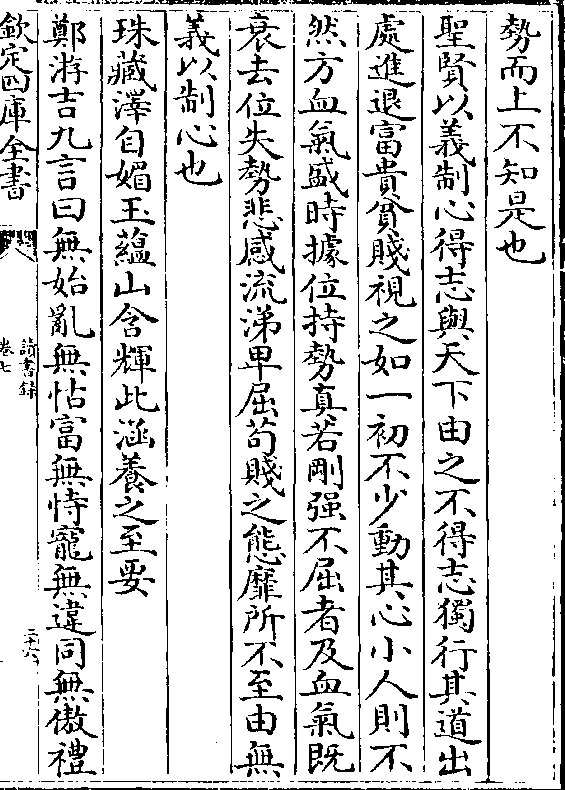 勢而上不知是也
聖賢以義制心得志與天下由之不得志獨行其道出
處進退富貴貧賤視之如一初不少動其心小人則不
然方血氣盛時據位持勢真若剛强不屈者及血氣既
衰去位失勢悲感流涕卑屈茍賤之態靡所不至由無
義以制心也
珠藏澤自媚玉蘊山含輝此涵養之至要
鄭游吉九言曰無始亂無怙富無恃寵無違同無傲禮
欽定四庫全書
讀書録
卷七
三十六